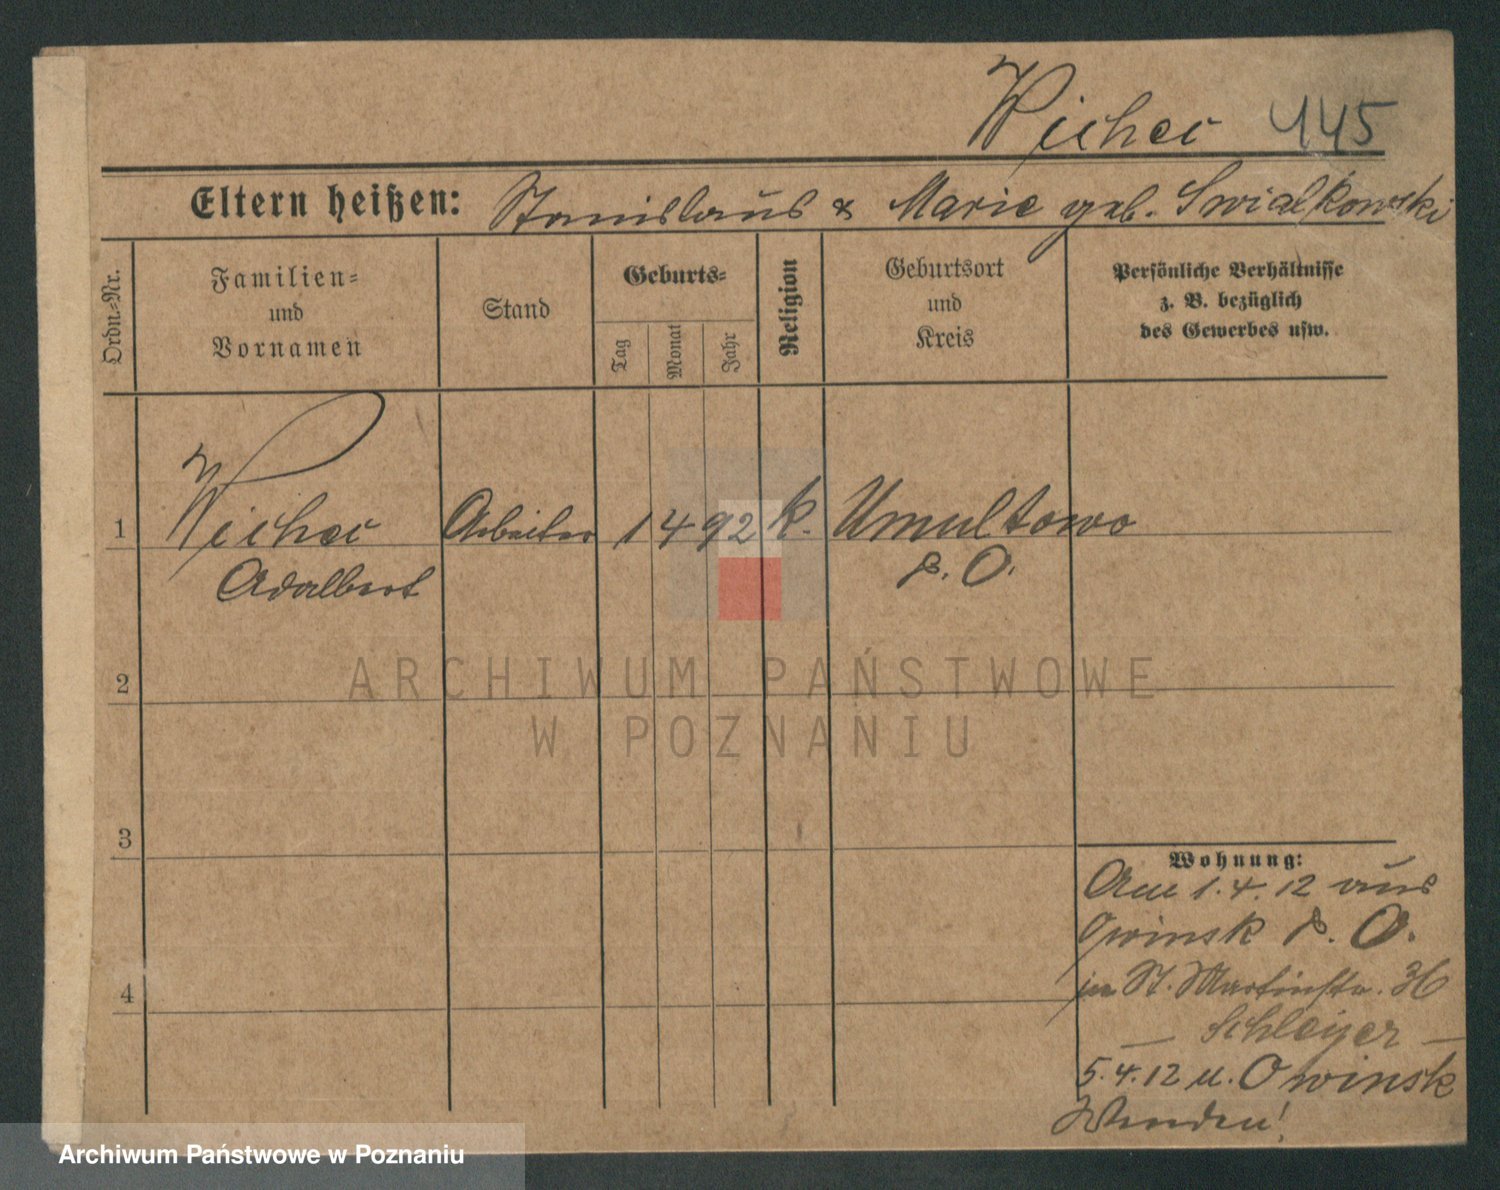 Wicher 445
Eltern heißen: Stanislaus & Marie geb. Swialkowski
Ordn.=Nr.
Familien=
und
Vornamen
Stand
Geburts=
Tag
Monat
Jahr
Religion
Geburtsort
und
Kreis
Persönliche Verhältnisse
z. B. bezüglich
des Gewerbes usw.
1 Wicher Arbeiter 1 4 92 k. Umultowo
Adalbert P. O.
2
3
4
Wohnung:
Am 1.4.12 aus
Owinsk P. O.
in St. Martinstr. 36
— Schleyer —
5.4.12 n. Owinsk
Wenden!
ARCHIWUM PAŃSTWOWE
W POZNANIU
Archiwum Państwowe w Poznaniu